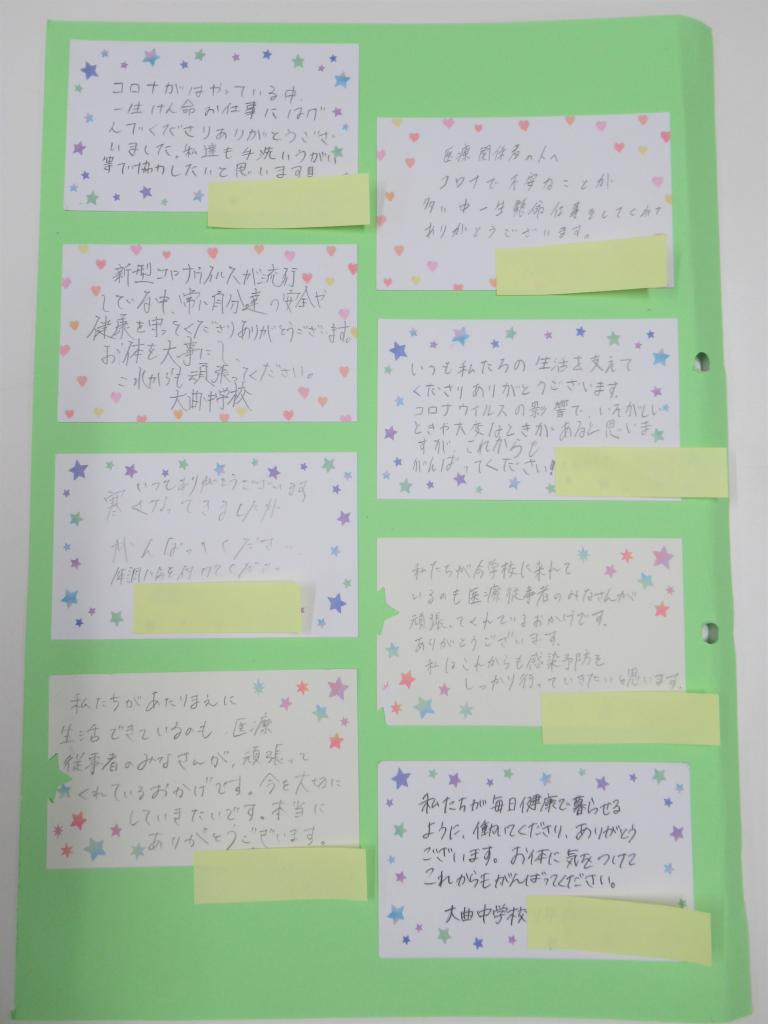 コロナがはやっている中、
一生けん命お仕事にはげ
んでくださりありがとうござ
いました。私達も手洗いうがい
等で協力したいと思います!!
新型コロナウイルスが流行
している中、常に自分達の安全や
健康を守ってくださりありがとうございます。
お体を大事にし、
これからも頑張ってください。
大曲中学校
いつもありがとうございます
寒くなってきましたが
がんばってくださ
体調に気を付けてくださ
私たちがあたりまえに
生活できているのも、医療
従事者のみなさんが、頑張って
くれているおかげです。今を大切に
していきたいです。本当に
ありがとうございます。
医療関係者の人へ
コロナで不安なことが
多い中一生懸命仕事をしてくれて
ありがとうございます。
いつも私たちの生活を支えて
くださりありがとうございます。
コロナウイルスの影響で、いそがしい
ときや大変なときがあると思いま
すが、これからも
がんばってください!
私たちが今学校に来れて
いるのも医療従事者のみなさんが
頑張ってくれているおかげです。
ありがとうございます。
私はこれからも感染予防を
しっかり行っていきたいと思います。
私たちが毎日健康で暮らせる
ように、働いてくださり、ありがとう
ございます。お体に気をつけて
これからもがんばってください。
大曲中学校